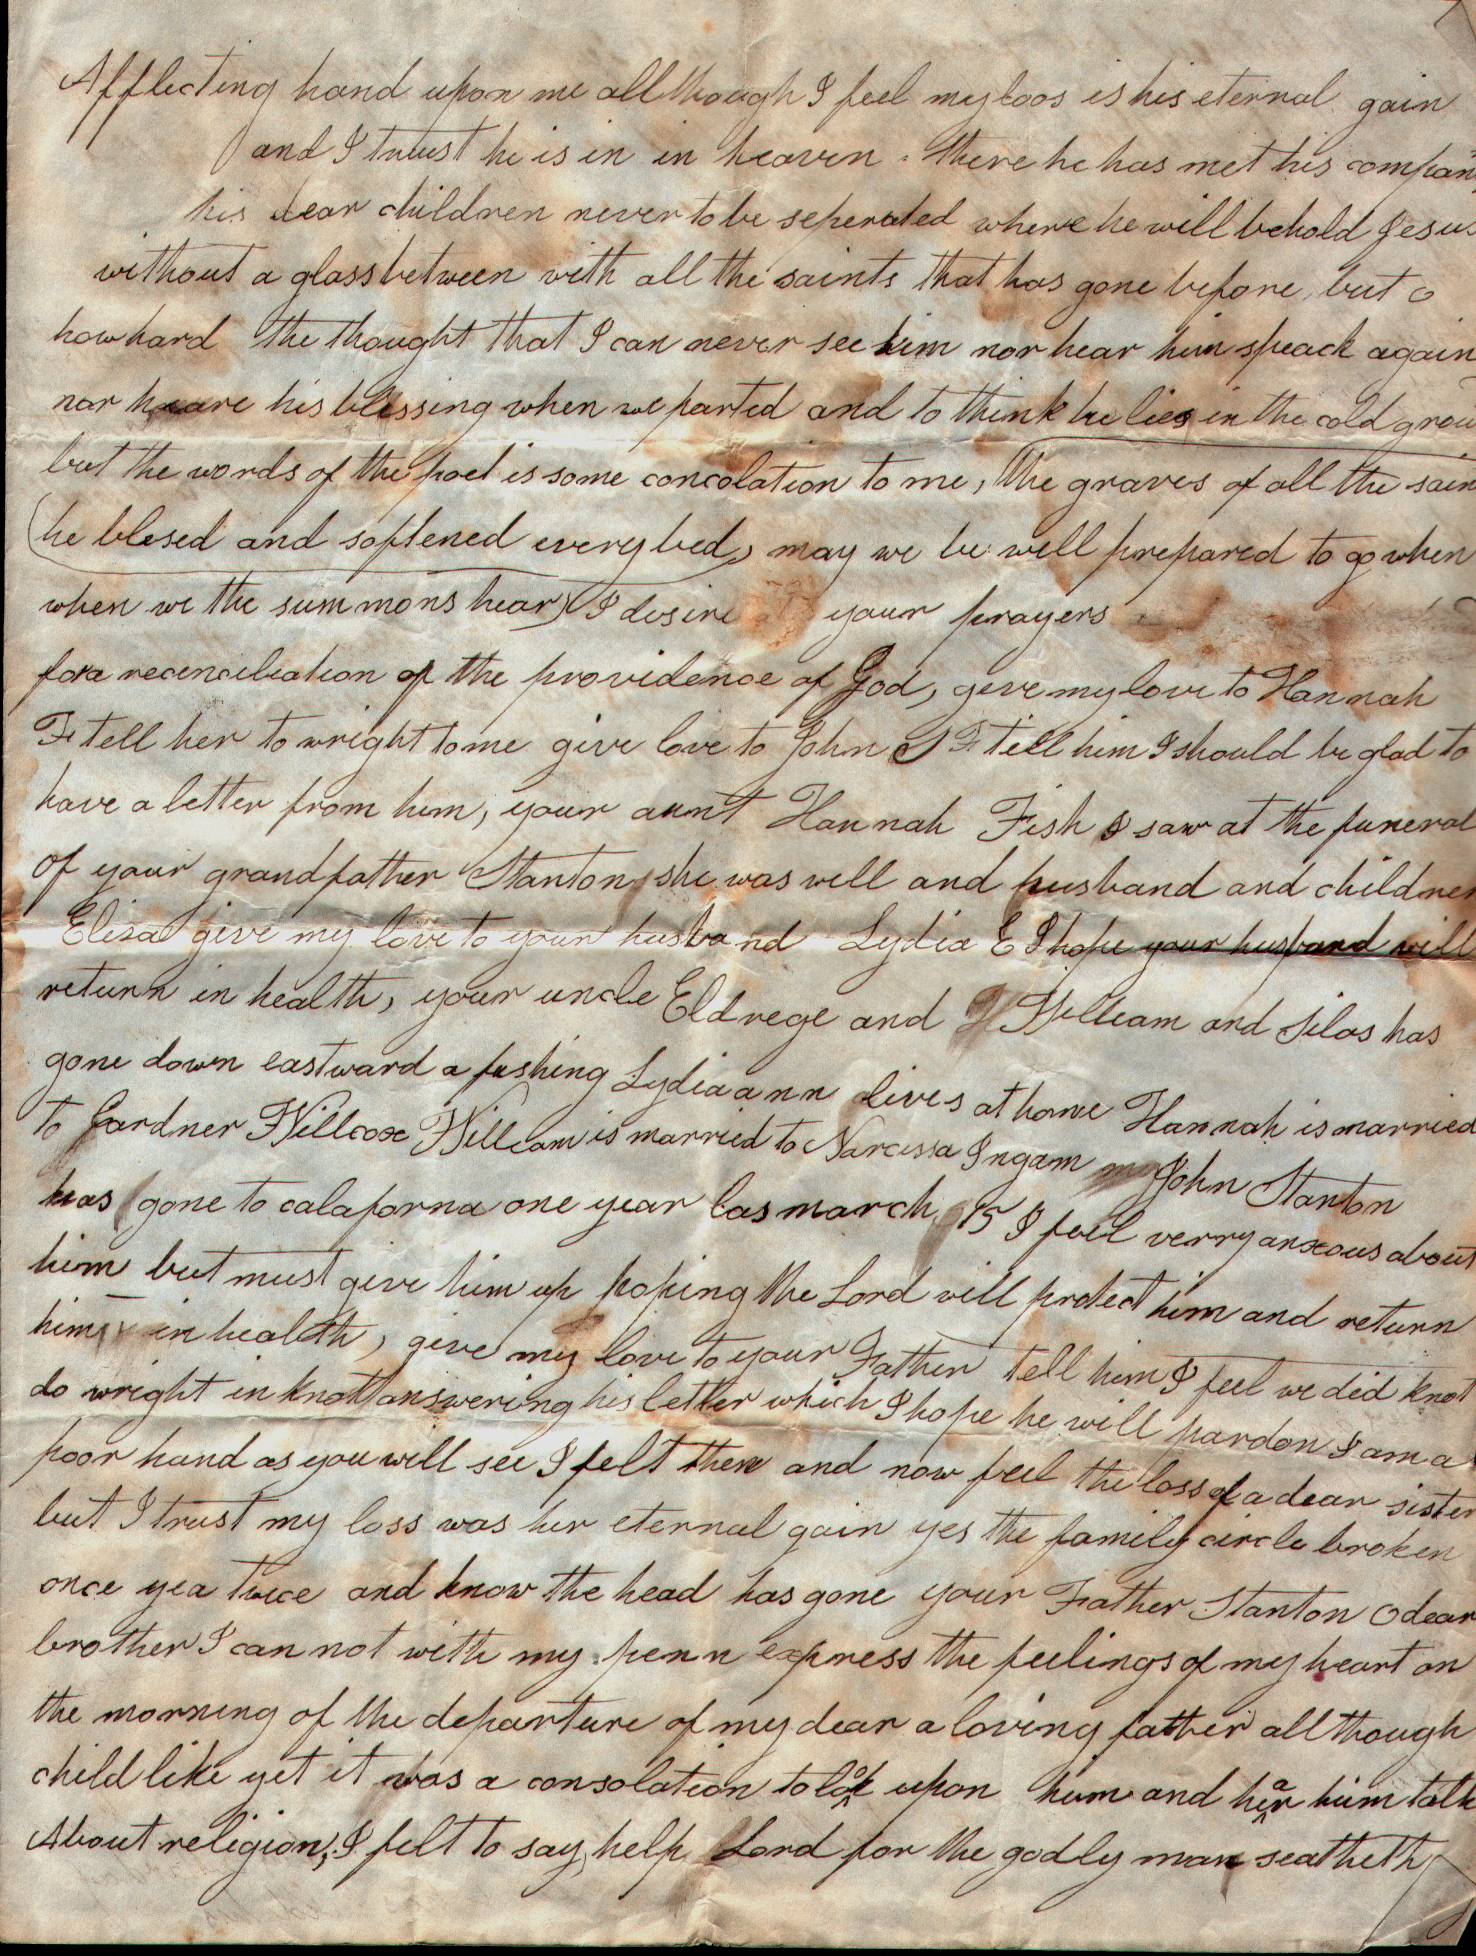 Afflecting hand upon me allthough I feel my loos is his eternal gain
and I trust he is in in heaven. there he has met his compan
his dear children never to be seperated where he will behold Jesus
without a glass between with all the saints that has gone before, but o
how hard the thought that I can never see him nor hear him speack again
nor heare his blessing when we parted and to think he lies in the cold grou
but the words of the poet is some concolation to me, (the graves of all the sain
he blesed and softened every bed, may we be well prepared to go when
when we the summons hear) I desire your prayers
for a reconcileation of the providence of God, give my love to Hannah
F tell her to wright to me give love to John S F tell him I should be glad to
have a letter from him, your aunt Hannah Fish I saw at the funeral
of your grandfather Stanton she was well and husband and children
Eliza give my love to your husband Lydia E I hope your husband will
return in health, your uncle Eldrege and William and Silas has
gone down eastward a fishing Lydiaann lives at home Hannah is married
to Gardner Willcox Willeam is married to Narcissa Ingam my John Stanton
has gone to calaforna one year las march 15 I feel verry anxous about
him but must give him up hoping the Lord will protect him and return
him in health, give my love to your Father tell him I feel we did knot
do wright in knot answering his letter which I hope he will pardon I am a
poor hand as you will see I felt then and now feel the loss of a dear sister
but I trust my loss was her eternal gain yes the family circle broken
once yea twice and know the head has gone your Father Stanton O dear
brother I can not with my penn express the feelings of my heart on
the morning of the departure of my dear a loving father allthough
childlike yet it was a consolation to look upon him and hear him talk
About religion, I felt to say, help Lord for the godly man seatheth